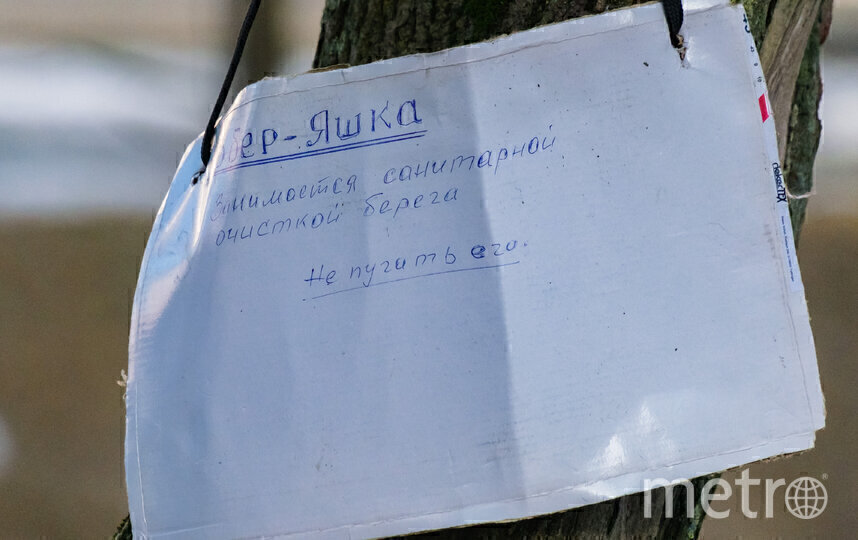 Бобер-Яшка
Занимается санитарной
очисткой берега
Не пугать его.
metro